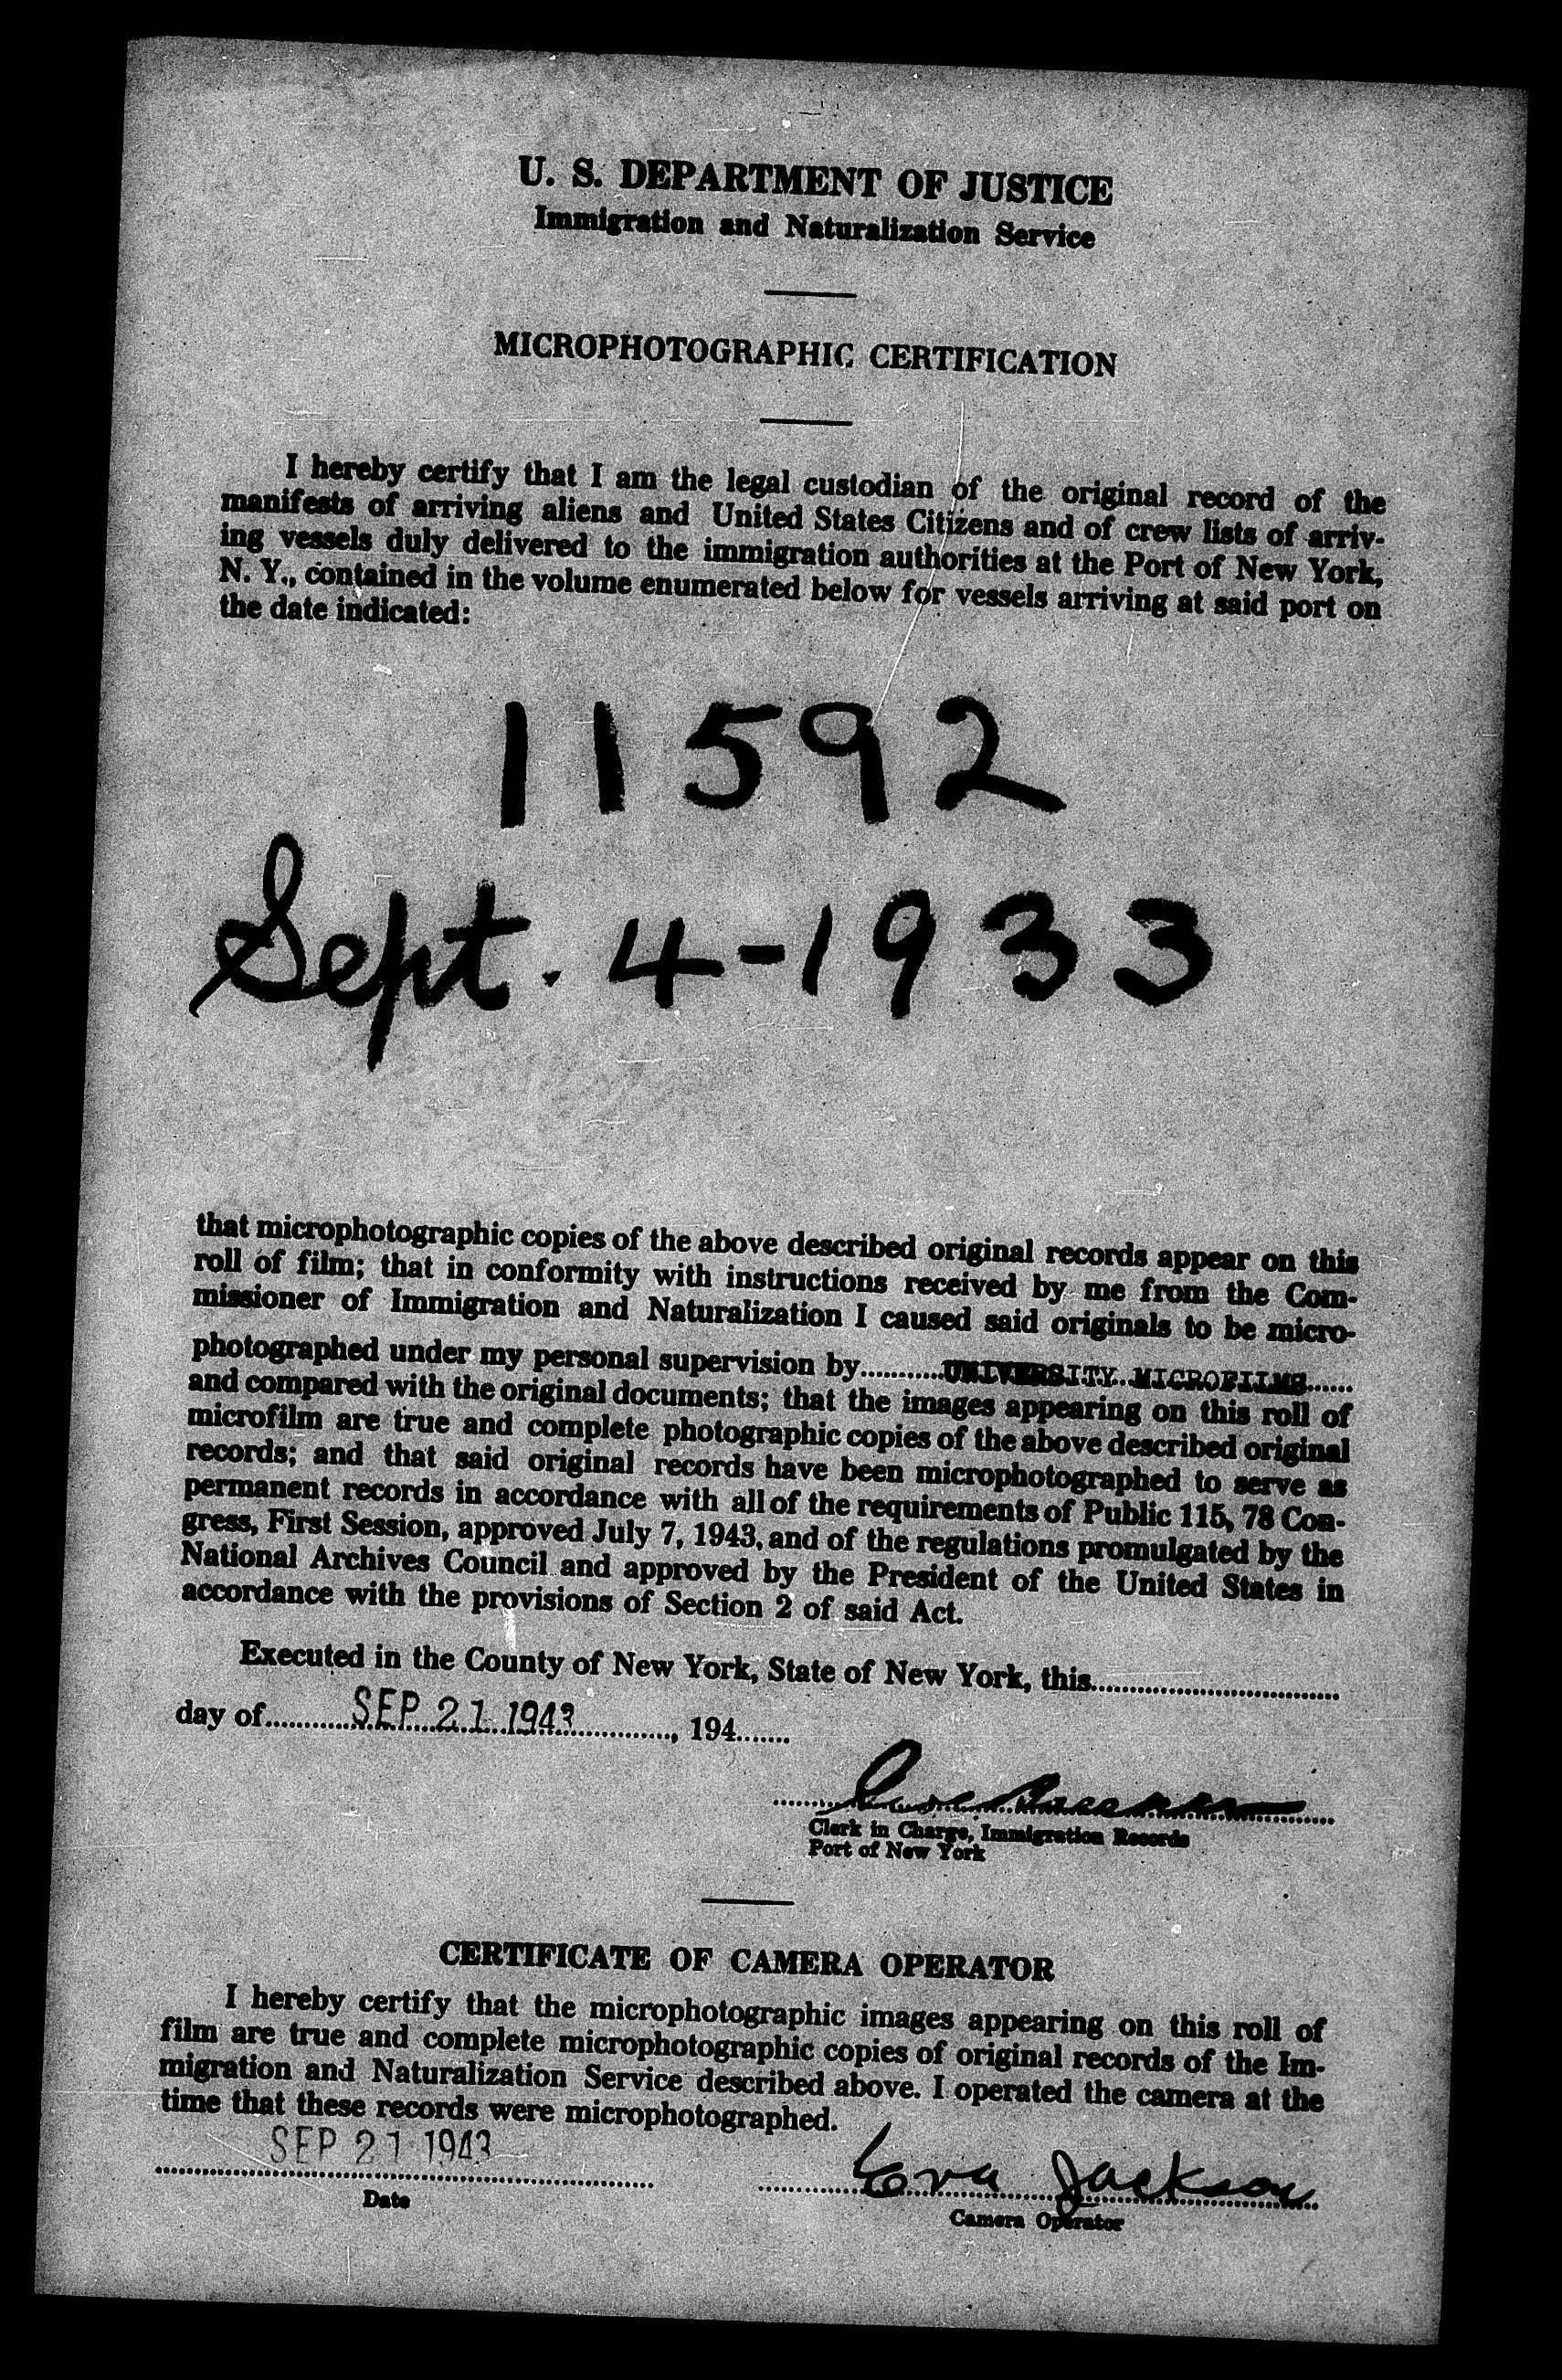 U. S. DEPARTMENT OF JUSTICE
Immigration and Naturalization Service
MICROPHOTOGRAPHIC CERTIFICATION
I hereby certify that I am the legal custodian of the original record of the
manifests of arriving aliens and United States Citizens and of crew lists of arriv-
ing vessels duly delivered to the immigration authorities at the Port of New York,
N. Y., contained in the volume enumerated below for vessels arriving at said port on
the date indicated:
11592
Sept. 4-1933
that microphotographic copies of the above described original records appear on this
roll of film; that in conformity with instructions received by me from the Com-
missioner of Immigration and Naturalization I caused said originals to be micro-
photographed under my personal supervision by UNIVERSITY MICROFILMS
and compared with the original documents; that the images appearing on this roll of
microfilm are true and complete photographic copies of the above described original
records; and that said original records have been microphotographed to serve as
permanent records in accordance with all of the requirements of Public 115, 78 Con-
gress, First Session, approved July 7, 1943, and of the regulations promulgated by the
National Archives Council and approved by the President of the United States in
accordance with the provisions of Section 2 of said Act.
Executed in the County of New York, State of New York, this
day of SEP 21 1943, 194
Clerk in Charge, Immigration Records
Port of New York
CERTIFICATE OF CAMERA OPERATOR
I hereby certify that the microphotographic images appearing on this roll of
film are true and complete microphotographic copies of original records of the Im-
migration and Naturalization Service described above. I operated the camera at the
time that these records were microphotographed.
SEP 21 1943 Eva Jackson
Date Camera Operator